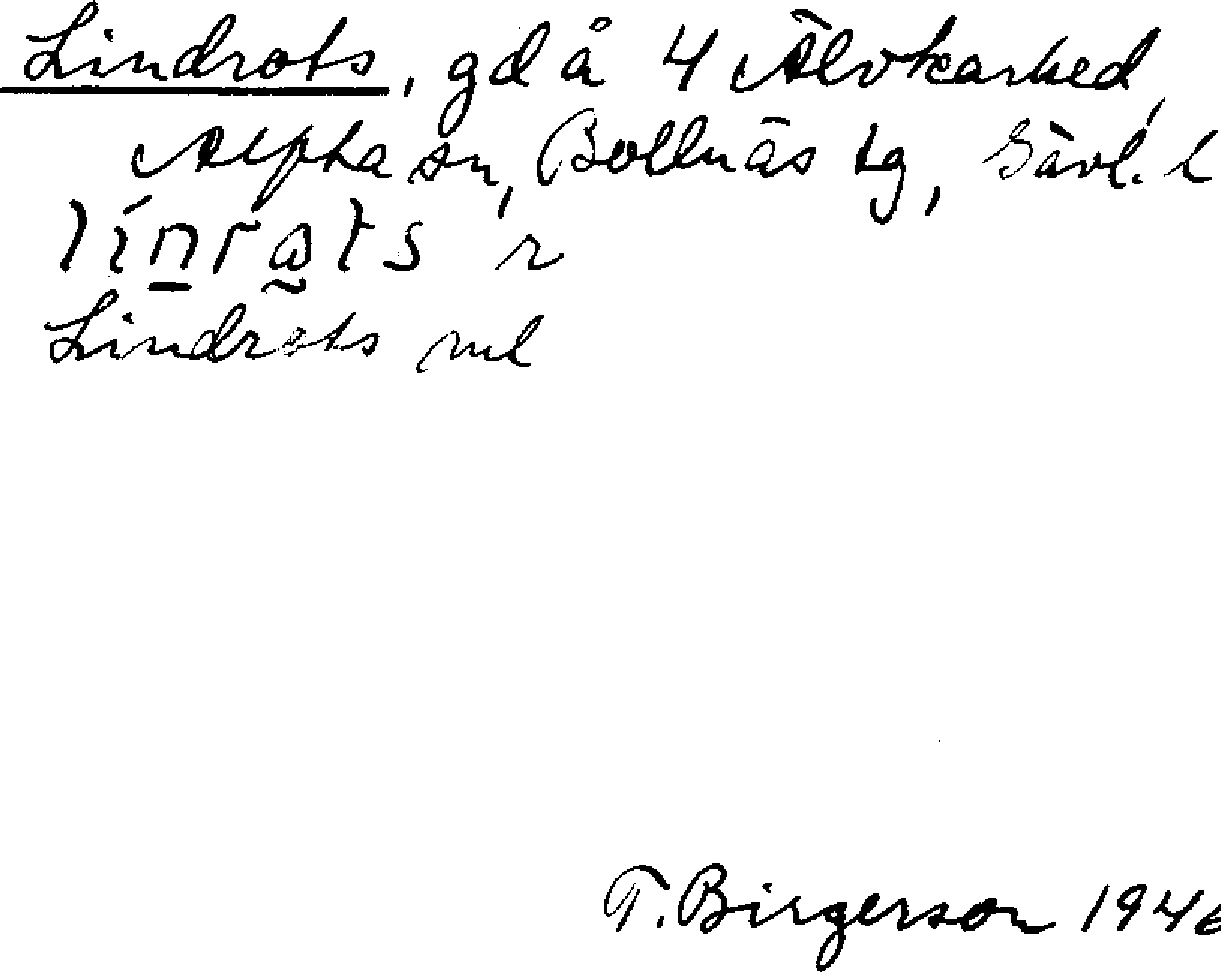 Lindrots, gd å 4 Älvkarhed,
Alfta sn, Bollnäs tg, Gävl. l
Lindrots ml
T. Birgerson 1946